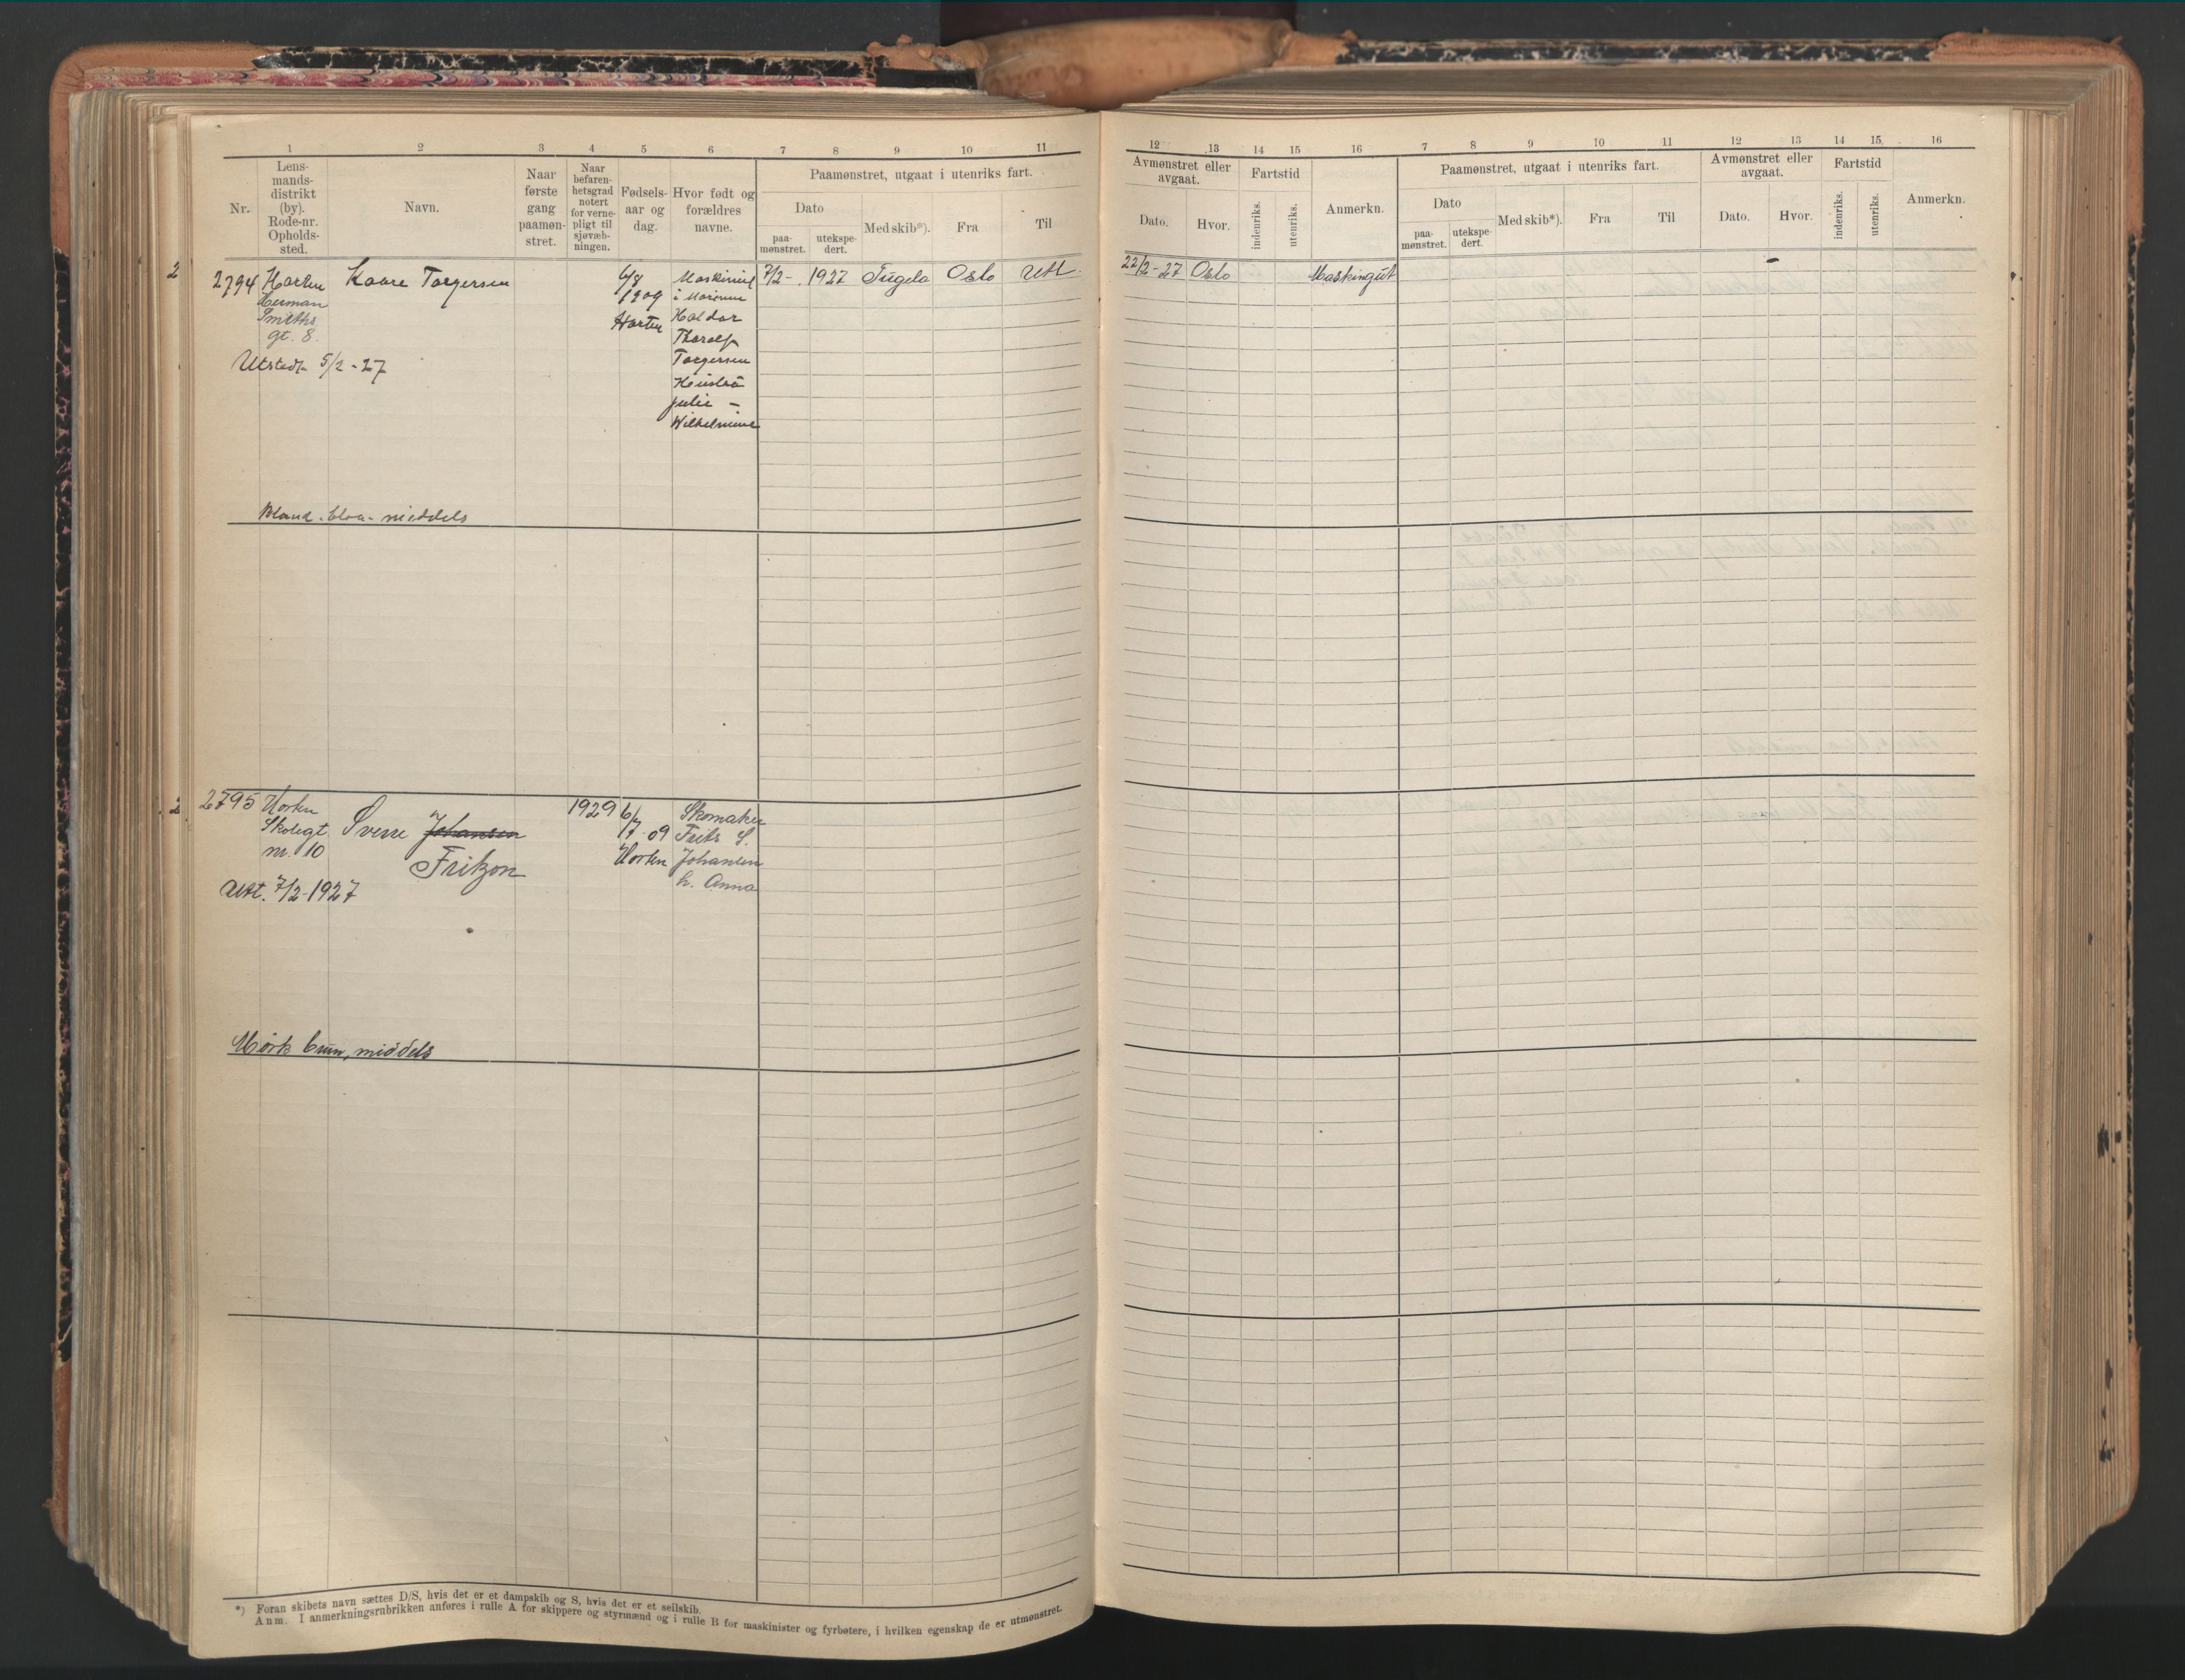 1 2 3 4 5 6 7 8 9 10 11
Nr.
Lens-
mands-
distrikt
(by).
Rode-nr.
Opholds-
sted.
Navn.
Naar
første
gang
paamøn-
stret.
Naar
befaren-
hetsgrad
notert
for verne-
pligt til
sjøvæb-
ningen.
Fødsels-
aar og
dag.
Hvor født og
forældres
navne.
Paamønstret, utgaat i utenriks fart.
Dato
paa-
mønstret.
utekspe-
dert.
Med skib*).
Fra
Til
2
2794 Horten Kaare Torgersen 6/8 Maskinist 7/2- 1927 Tugela Oslo Utl.
Herman 1909 i Marinen
Smiths Horten Haldor
gt. 8. Thorolf
Utstedt 5/2-27 Torgersen
Julie –
Wilhelmine
Bland. blaa. middels
2
2795 Horten Sverre Johansen 1929 6/ Skomaker
Skolegt. /7-09 Frits S.
nr. 10 Fritzon Horten Johansen
Utst. 7/2-1927 h. Anna
Mörk brun, middels
*) Foran skibets navn sættes D/S, hvis det er et dampskib og S, hvis det er et seilskib.
Anm. I anmerkningsrubrikken anføres i rulle A for skippere og styrmænd og i rulle B for maskinister og fyrbøtere, i hvilken egenskap de er utmønstret.
12 13 14 15 16 7 8 9 10 11 12 13 14 15 16
Avmønstret eller
avgaat.
Dato. Hvor.
Fartstid
indenriks.
utenriks.
Anmerkn.
Paamønstret, utgaat i utenriks fart.
Dato
paa-
mønstret.
utekspe-
dert.
Med skib*).
Fra
Til
Avmønstret eller
avgaat.
Dato. Hvor.
Fartstid
indenriks.
utenriks.
Anmerkn.
22/2-27 Oslo Maskingut